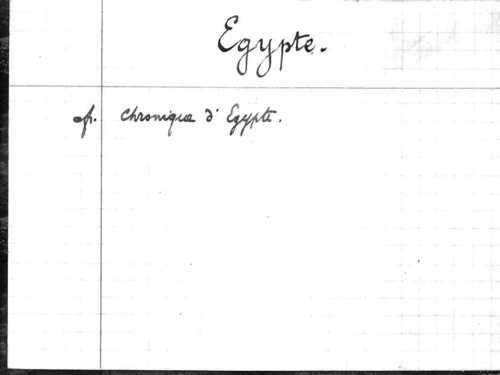 Egypte.
cfr. Chronique d'Egypte.